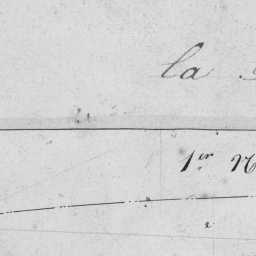 la
1er N